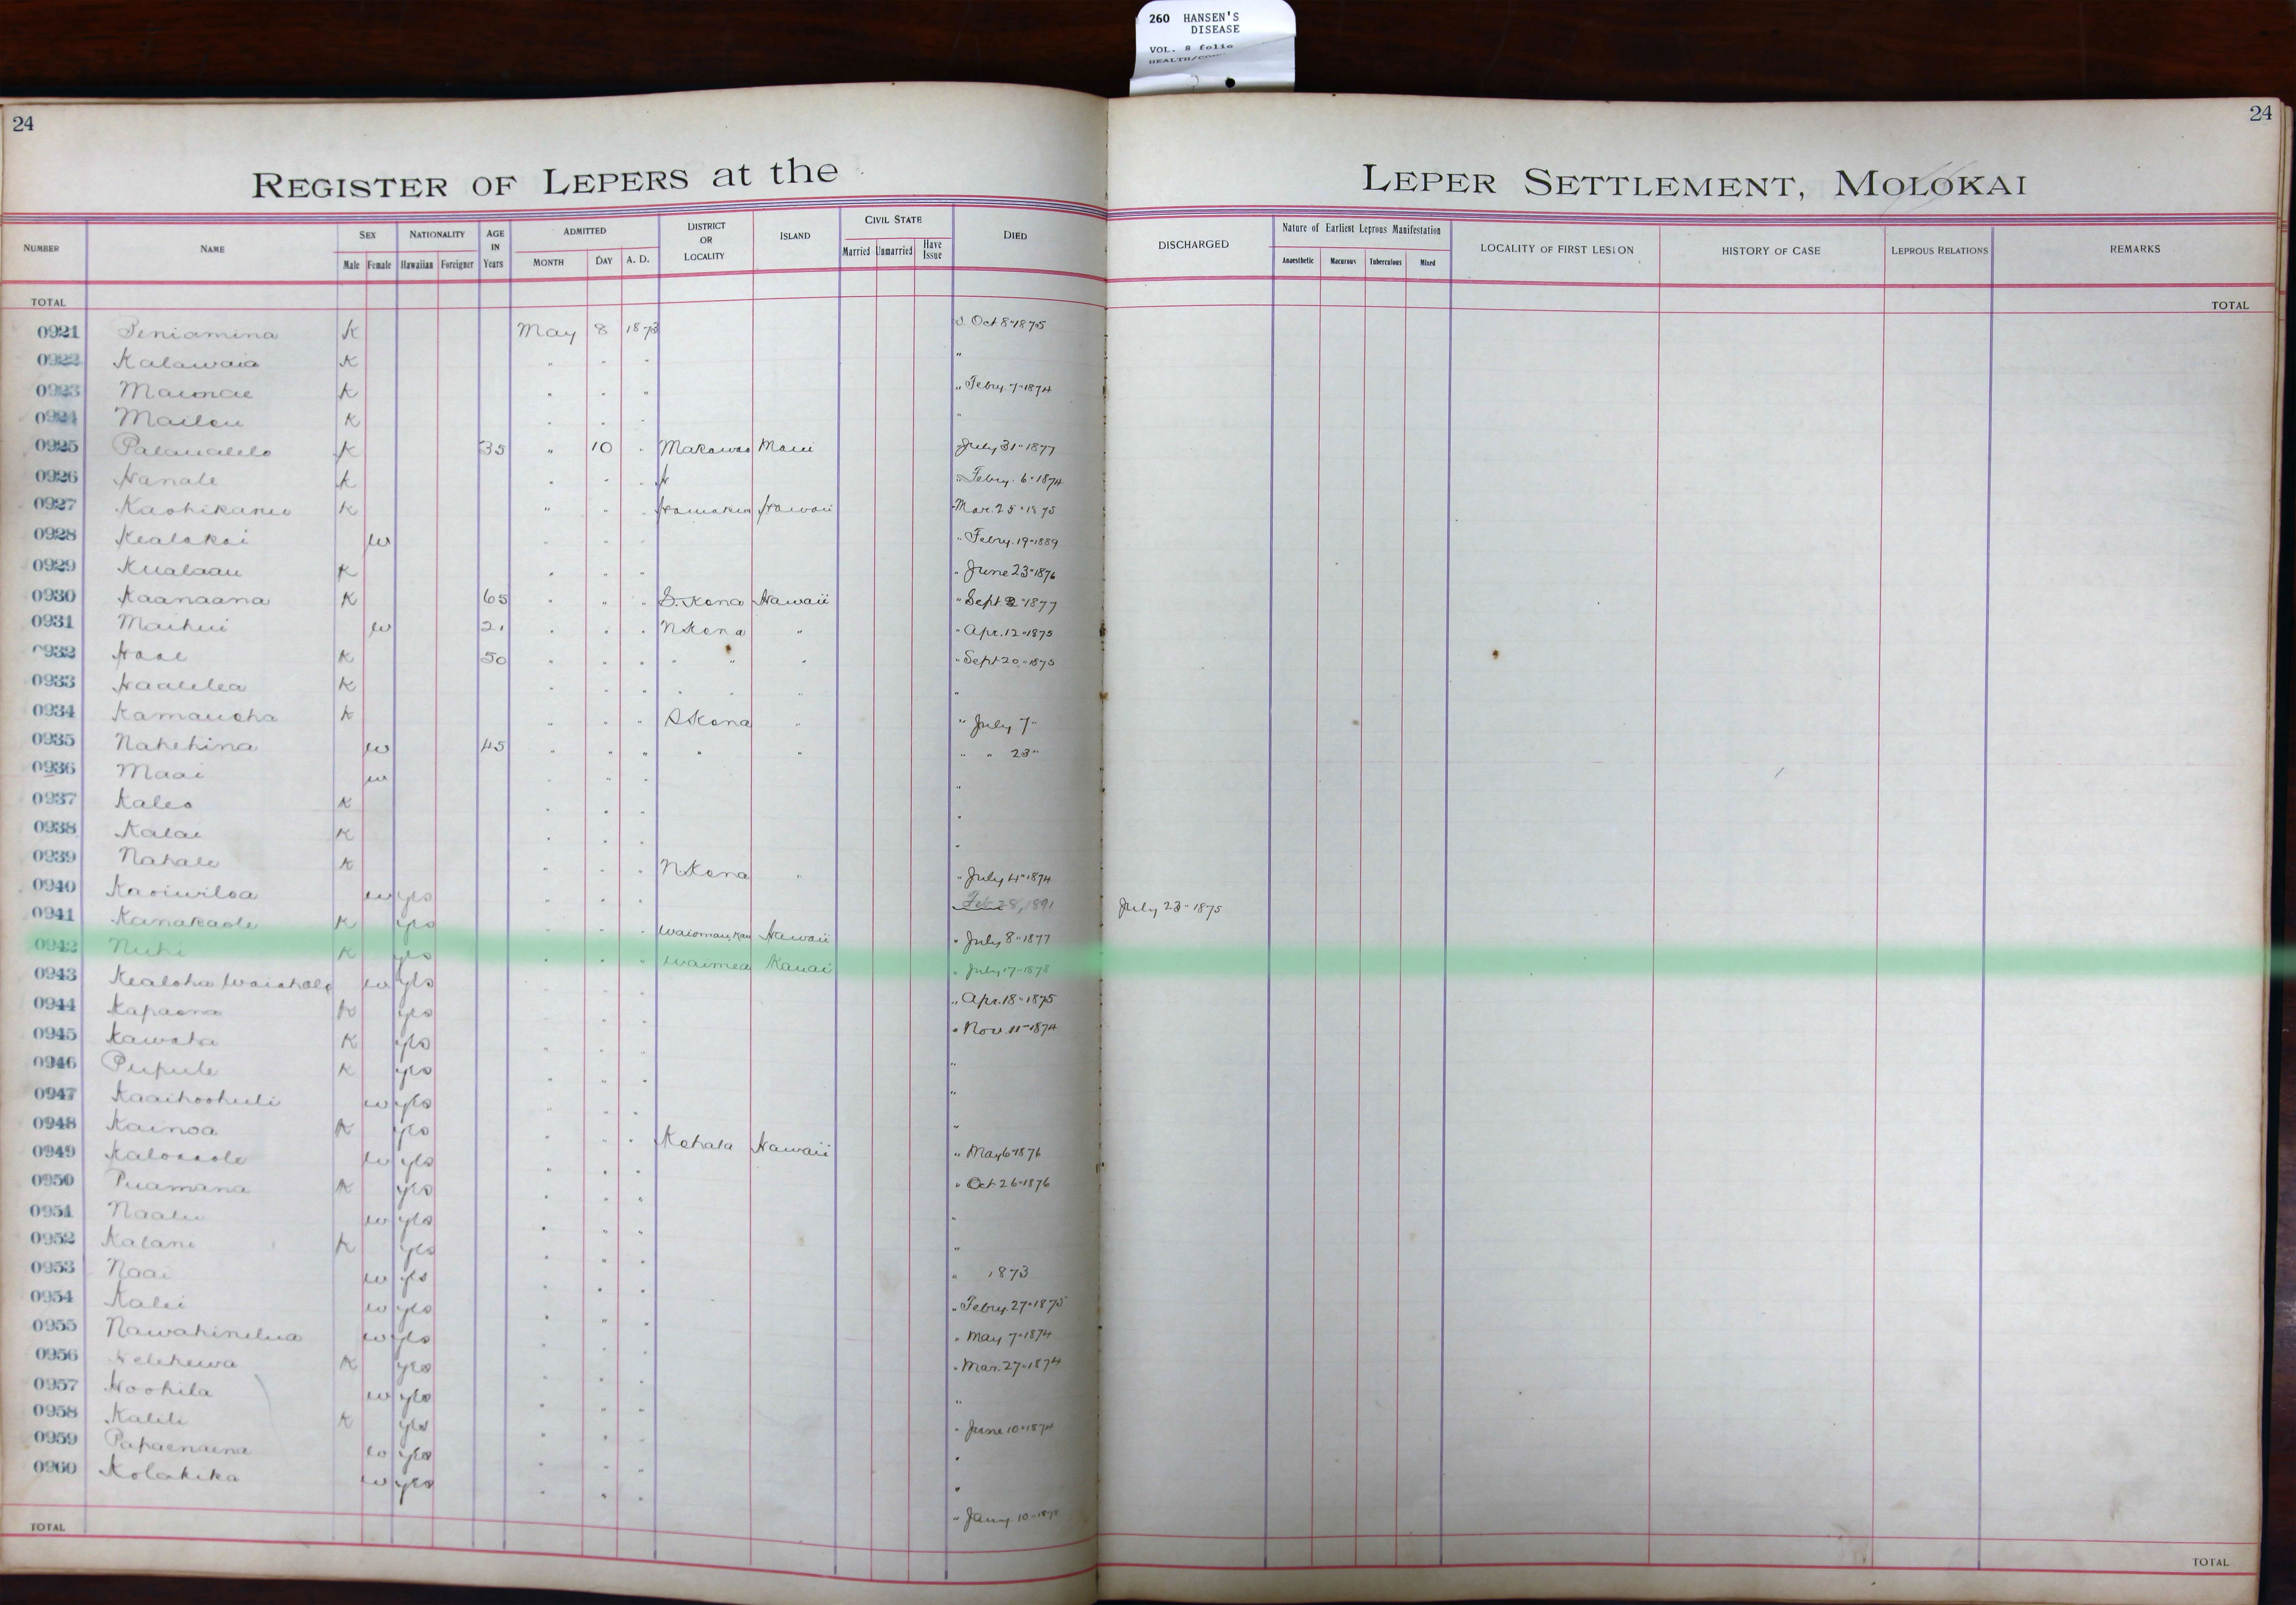 260 HANSEN'S
DISEASE
VOL. 8 folio
24
24
REGISTER OF LEPERS at the LEPER SETTLEMENT, MOLOKAI
NUMBER NAME SEX Male Female NATIONALITY Hawaiian Foreigner AGE IN Years ADMITTED MONTH DAY A. D. DISTRICT OR LOCALITY ISLAND CIVIL STATE Married Unmarried Have Issue DIED DISCHARGED Nature of Earliest Leprous Manifestation Anaesthetic Macurous Tuberculous Mixed LOCALITY OF FIRST LESION HISTORY OF CASE LEPROUS RELATIONS REMARKS
TOTAL TOTAL
0921 Peniamina K May 8 1873 D. Oct 8" 1875
0922 Kalawaia K " " " "
0923 K " " " " Febry. 7" 1874
0924 K " " " "
0925 K 35 " 10 " Makawao Maui July 31" 1877
0926 Hanale K " " " " Febry. 6" 1874
0927 K " " " Hamakua Hawaii Mar. 25" 1875
0928 Kealakai w " " " " Febry. 19" 1889
0929 Kualaau K " " " " June 23" 1876
0930 Kaanaana K 65 " " " S. Kona Hawaii " Sept 1877
0931 Maihui w 21 " " " N Kona " " Apr. 12" 1875
0932 K 50 " " " " " " " Sept 20" 1875
0933 Haalelea K " " " " " " "
0934 Kamauoha K " " " S Kona " " July 7"
0935 Nahehina w 45 " " " " " " " 23"
0936 Maai w " " " "
0937 Kaleo K " " " "
0938 Kalae K " " " "
0939 Nahale K " " " N Kona " " July 4" 1874
0940 Kaoiwiloa w yes " " " Feb 28, 1891 July 23" 1875
0941 Kanakaole K yes " " " Hawaii " July 8" 1877
0942 Nuhi K yes " " " Waimea Kauai " July 17" 1878
0943 Kealoha w yes " " " " Apr. 18" 1875
0944 Kapaona K yes " " " " Nov. 11" 1874
0945 Kawaha K yes " " " "
0946 Pupule K yes " " " "
0947 Kaaihoohuli w yes " " " "
0948 Kainoa K yes " " " Kohala Hawaii " May 6" 1876
0949 w yes " " " " Oct 26" 1876
0950 Puamana K yes " " " "
0951 Naalu w yes " " " "
0952 Kalani K yes " " " " 1873
0953 Naai w yes " " " " Febry. 27" 1875
0954 Kalei w yes " " " " May 7" 1874
0955 w yes " " " " Mar. 27" 1874
0956 K yes " " " "
0957 Hoohila w yes " " " " June 10" 1874
0958 Kalili K yes " " " "
0959 Papaenaena w yes " " " "
0960 Kolakika w yes " " " " Jany. 10"
TOTAL TOTAL